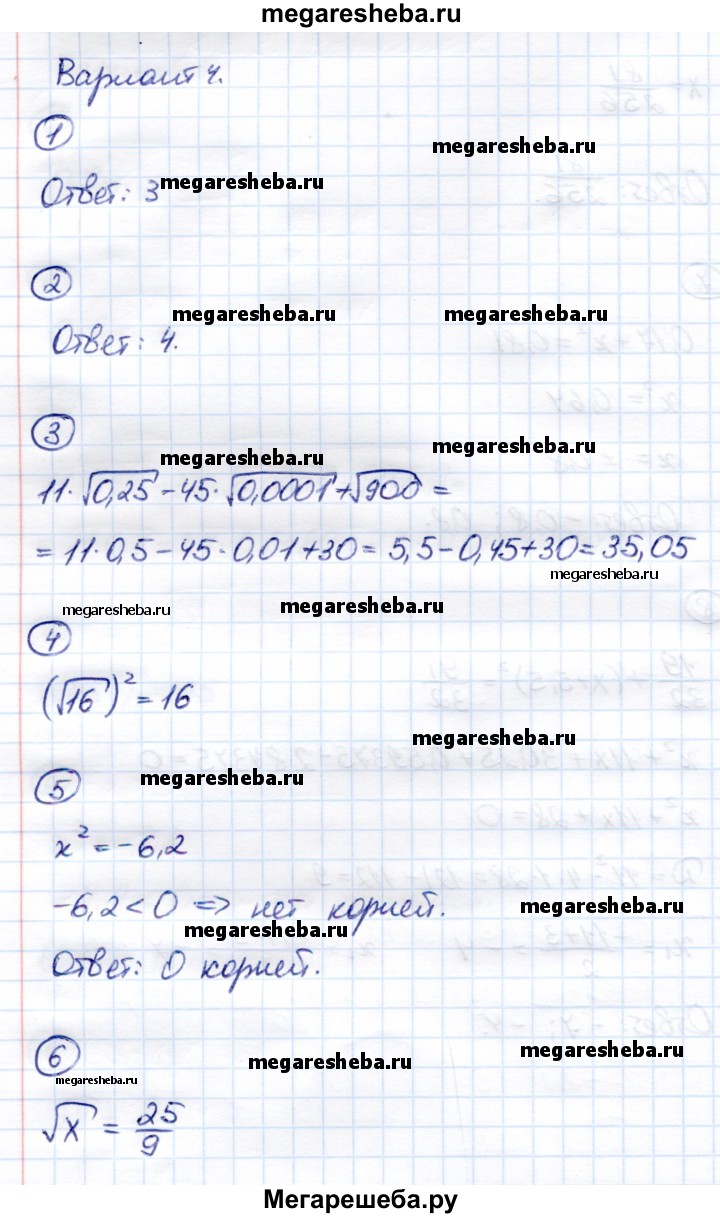 megaresheba.ru
Вариант 4.
1
megaresheba.ru
Ответ: 3 megaresheba.ru
2
megaresheba.ru megaresheba.ru
Ответ: 4.
3
megaresheba.ru megaresheba.ru
11·√0,25 − 45·√0,0001 + √900 =
= 11·0,5 − 45·0,01 + 30 = 5,5 − 0,45 + 30 = 35,05
megaresheba.ru
megaresheba.ru megaresheba.ru
4
(√16)² = 16
megaresheba.ru
5 megaresheba.ru
x² = −6,2
−6,2 < 0 => нет корней. megaresheba.ru
megaresheba.ru
Ответ: 0 корней.
6 megaresheba.ru megaresheba.ru
megaresheba.ru
√x = 25/9
Мегарешеба.ру